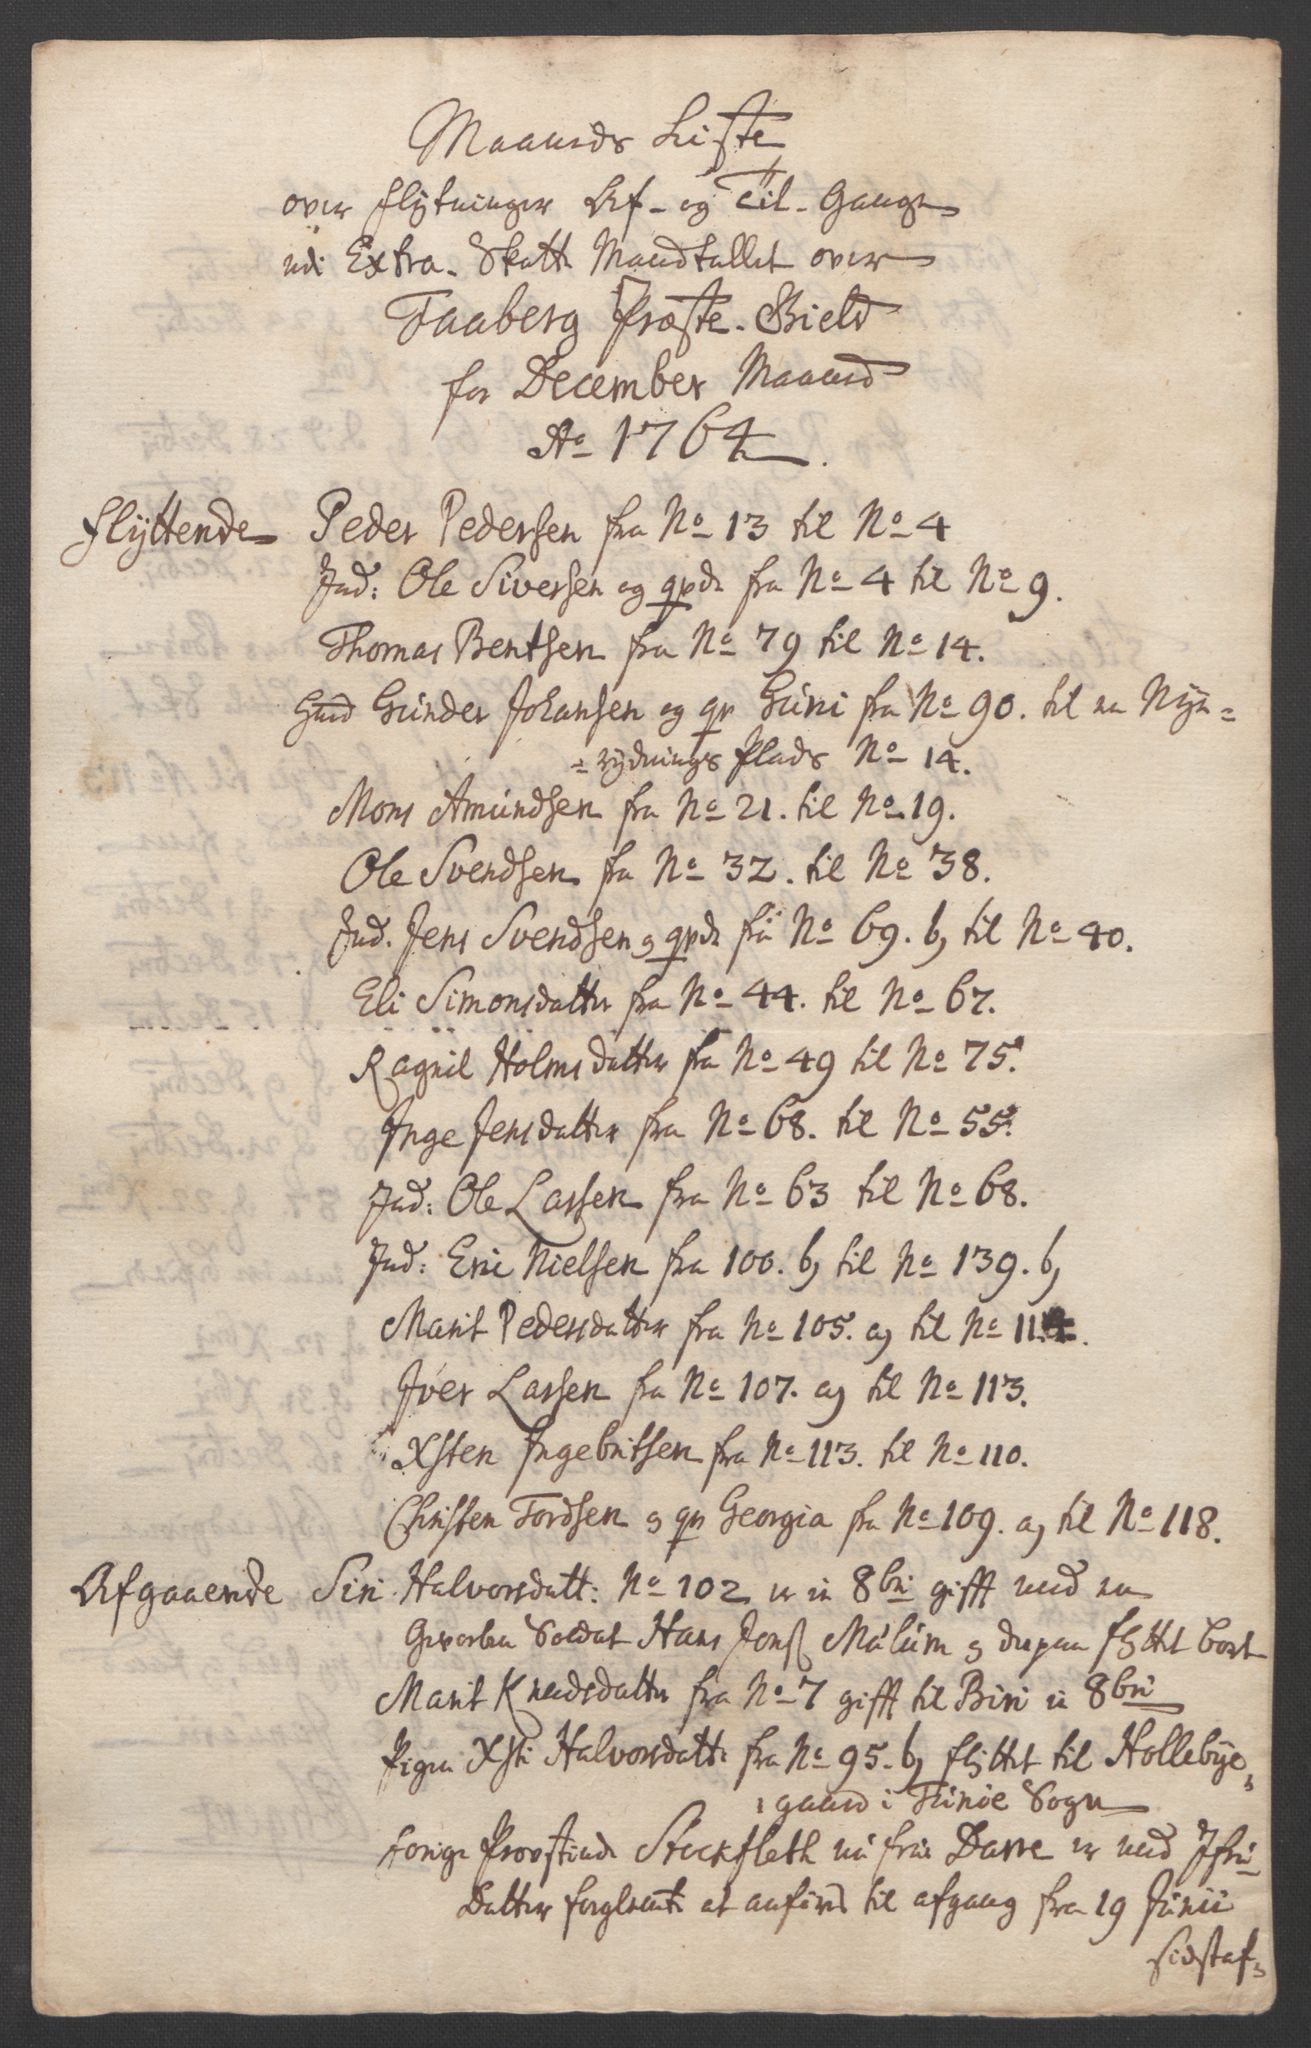 Maaneds Liste
over Flytninger Af- og Til-Gange
udi Extra-Skatte Mandtallet over
Faaberg Præste-Gield
for December Maaned
Ao 1764.
Flyttende Peder Pedersen fra No 13 til No 4
Ind: Ole Siversen og qvde fra No 4 til No 9.
Thomas Bentsen fra No 79 til No 14.
Gunder Johansen og qv Guri fra No 90. til en Nye=
=rydnings Plads No 14.
Mons Amundsen fra No 21. til No 19.
Ole Svendsen fra No 32. til No 38.
Ind. Jens Svendsen og qvde fra No 69. b, til No 40.
Eli Simonsdatter fra No 44. til No 67.
Ragnil Holmsdatter fra No 49 til No 75.
Inge Jensdatter fra No 68. til No 55.
Ind: Ole Larsen fra No 63 til No 68.
Ind: Eric Nielsen fra 100. b, til No 139. b,
Marit Pedersdatter fra No 105. a, til No 114.
Iver Larsen fra No 107. a, til No 113.
Xsten Ingebritsen fra No 113. til No 110.
Christen Tordsen og qv Georgia fra No 109. a, til No 118.
Afgaaende Siri Halvorsdatt: No 102 er in 8bri gifft med en
Gevorben Soldat Hans Jonss Mælum og derpaa flyttet bort
Marit Knudsdatter fra No 7 gifft til Biri in 8bri
Pigen Xsti Halvorsdatter fra No 95. b, flyttet til Hollebye,
gaard i Tunøe Sogn
forige Provstinde Stockfleth nu frue Darre er med Jfru
Datter forglemt at anføres til afgang fra 19 Junii
sidstaf,